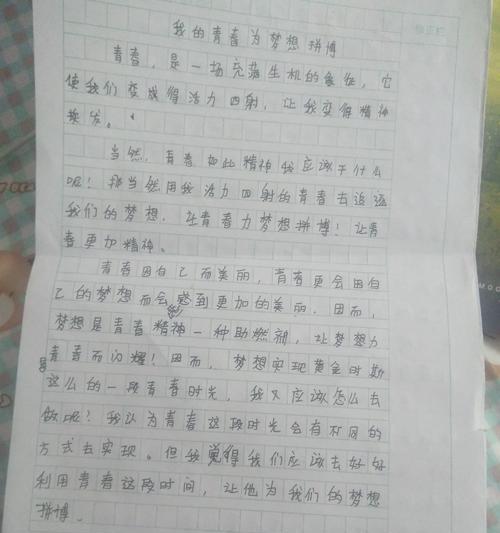 我的青春为梦想拼博
青春，是一场充满生机的象征，它
使我们变成得活力四射，让我变得精神
焕发。
当然，青春如此精神我应该干什么
呢！那当然用我活力四射的青春去追逐
我们的梦想，让青春为梦想拼博！让青
春更加精神。
青春因自己而美丽，青春更会因自
己的梦想而会感到更加的美丽。因而，
梦想是青春精神一种助燃剂，让梦想为
青春而闪耀！因而，梦想实现黄金时期
是
这么的一段青春时光，我又应该怎么去
做呢？我认为青春这段时光会有不同的
方式去实现。但我觉得我们应该去好好
利用青春这段时间，让他为我们的梦想
拼博。